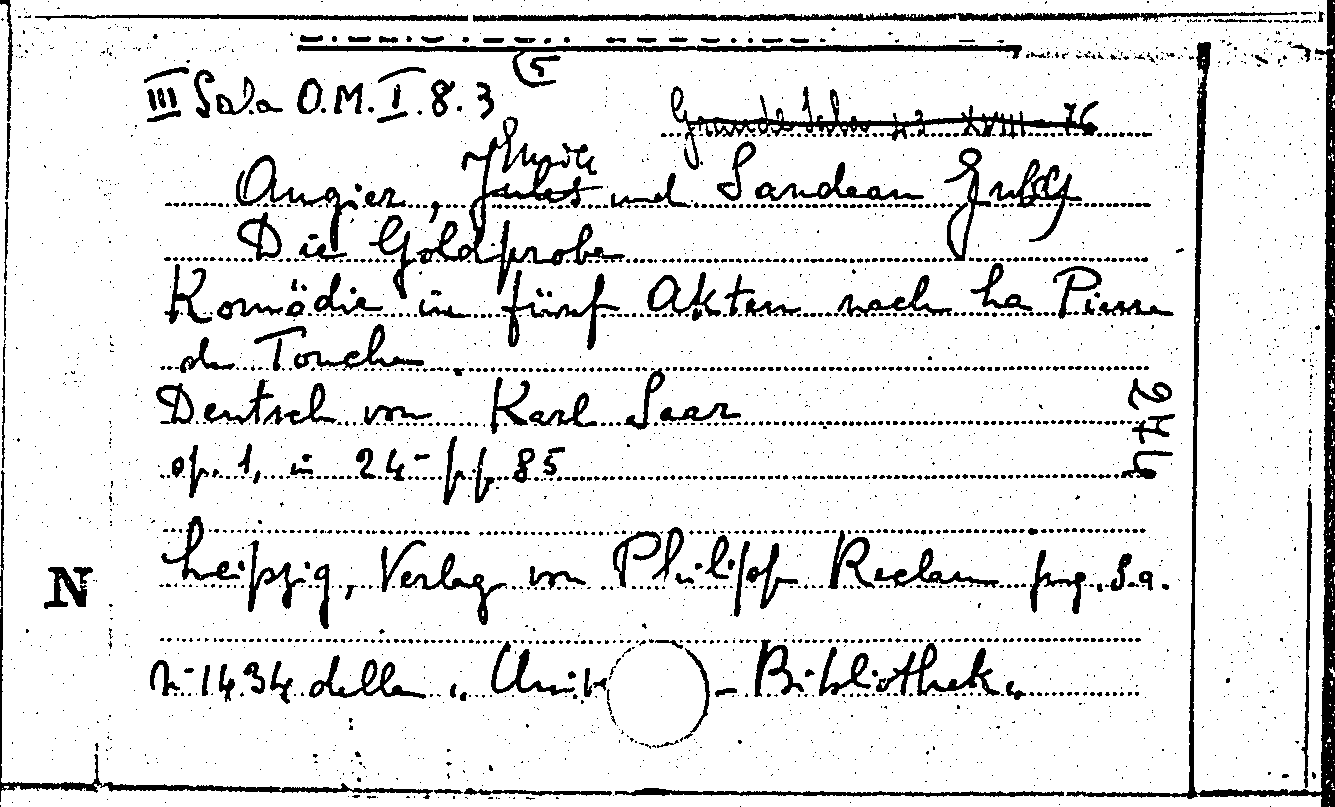 III Sala O.M. I. 8. 3 (5
Grande Sala 42 XVIII-76
Emile
Augier, Jules und Sandeau
Die Goldprobe
Komödie in fünf Akten nach La Pierre
de Touche.
Deutsch von Karl Saar
op. 1, in 24- pp 85
Leipzig, Verlag von Philipp Reclam s.a.
N
n-1434 della „ - Bibliothek„
244